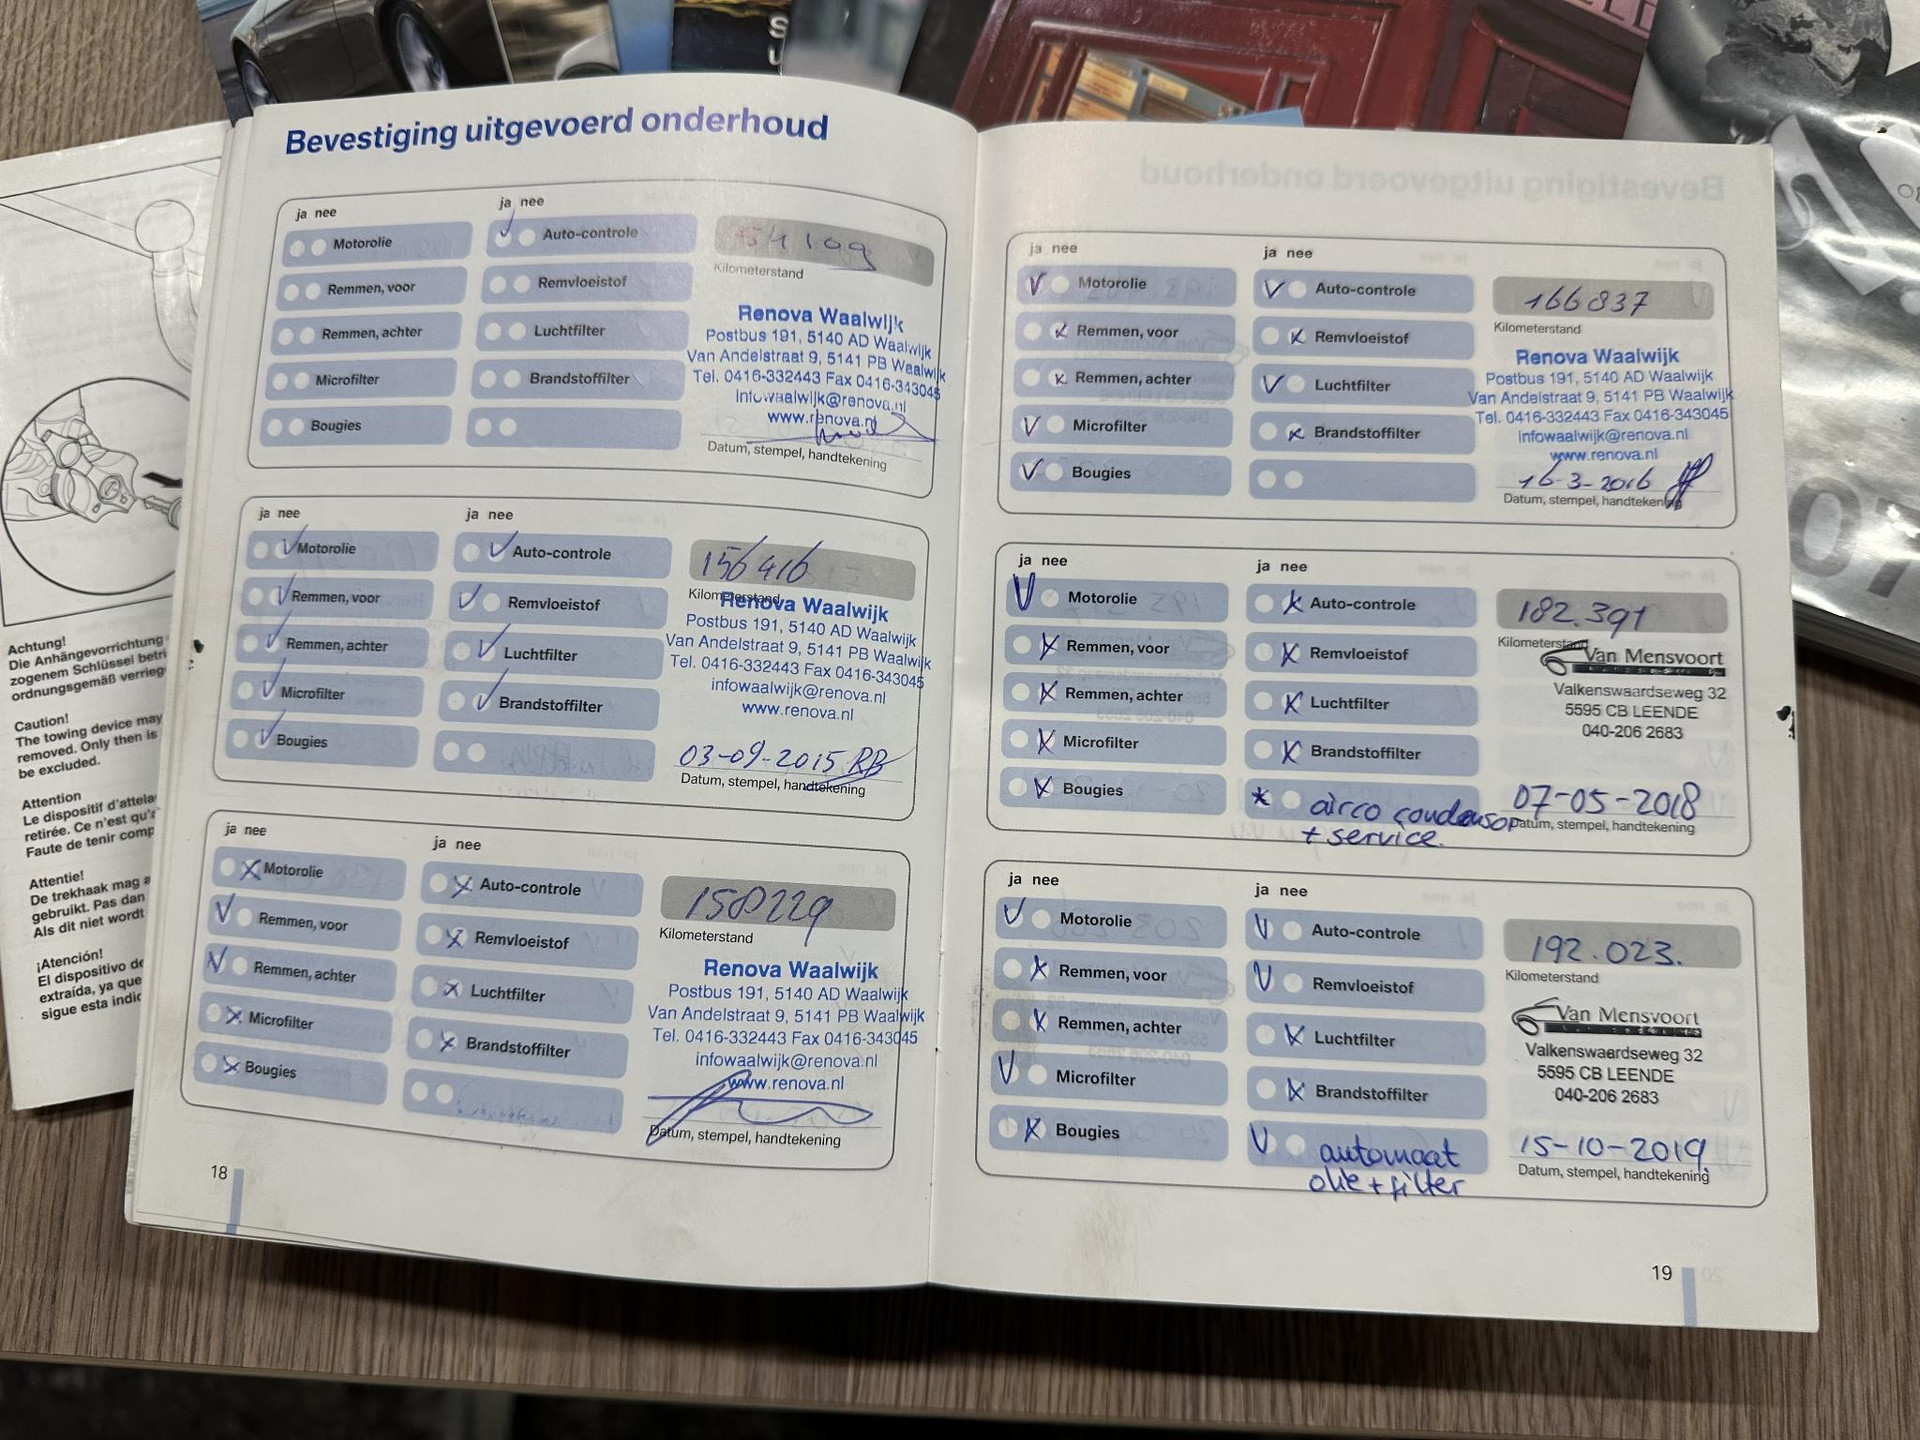 Bevestiging uitgevoerd onderhoud
ja nee
ja nee
Motorolie
Auto-controle
Remmen, voor
Remvloeistof
Remmen, achter
Luchtfilter
Microfilter
Brandstoffilter
Bougies
Kilometerstand
Renova Waalwijk
Postbus 191, 5140 AD Waalwijk
Van Andelstraat 9, 5141 PB Waalwijk
Tel. 0416-332443 Fax 0416-343045
infowaalwijk@renova.nl
www.renova.nl
Datum, stempel, handtekening
ja nee
ja nee
Motorolie
Auto-controle
Remmen, voor
Remvloeistof
Remmen, achter
Luchtfilter
Microfilter
Brandstoffilter
Bougies
156416
Kilometerstand
Renova Waalwijk
Postbus 191, 5140 AD Waalwijk
Van Andelstraat 9, 5141 PB Waalwijk
Tel. 0416-332443 Fax 0416-343045
infowaalwijk@renova.nl
www.renova.nl
03-09-2015 RB
Datum, stempel, handtekening
ja nee
ja nee
Motorolie
Auto-controle
Remmen, voor
Remvloeistof
Remmen, achter
Luchtfilter
Microfilter
Brandstoffilter
Bougies
158229
Kilometerstand
Renova Waalwijk
Postbus 191, 5140 AD Waalwijk
Van Andelstraat 9, 5141 PB Waalwijk
Tel. 0416-332443 Fax 0416-343045
infowaalwijk@renova.nl
www.renova.nl
Datum, stempel, handtekening
18
ja nee
ja nee
Motorolie
Auto-controle
Remmen, voor
Remvloeistof
Remmen, achter
Luchtfilter
Microfilter
Brandstoffilter
Bougies
166837
Kilometerstand
Renova Waalwijk
Postbus 191, 5140 AD Waalwijk
Van Andelstraat 9, 5141 PB Waalwijk
Tel. 0416-332443 Fax 0416-343045
infowaalwijk@renova.nl
www.renova.nl
16-3-2016
Datum, stempel, handtekening
ja nee
ja nee
Motorolie
Auto-controle
Remmen, voor
Remvloeistof
Remmen, achter
Luchtfilter
Microfilter
Brandstoffilter
Bougies
* airco condensor
+ service.
182.391
Kilometerstand
Van Mensvoort
Valkenswaardseweg 32
5595 CB LEENDE
040-206 2683
07-05-2018
Datum, stempel, handtekening
ja nee
ja nee
Motorolie
Auto-controle
Remmen, voor
Remvloeistof
Remmen, achter
Luchtfilter
Microfilter
Brandstoffilter
Bougies
automaat
olie + filter
192.023.
Kilometerstand
Van Mensvoort
Valkenswaardseweg 32
5595 CB LEENDE
040-206 2683
15-10-2019
Datum, stempel, handtekening
19
Achtung!
Die Anhängevorrichtung
zogenem Schlüssel
ordnungsgemäß
Caution!
The towing device may
removed. Only then is
be excluded.
Attention
Le dispositif
retirée. Ce n'est
Faute de tenir
Attentie!
De trekhaak mag
gebruikt. Pas dan
Als dit niet wordt
¡Atención!
El dispositivo
extraída, ya que
sigue esta
07